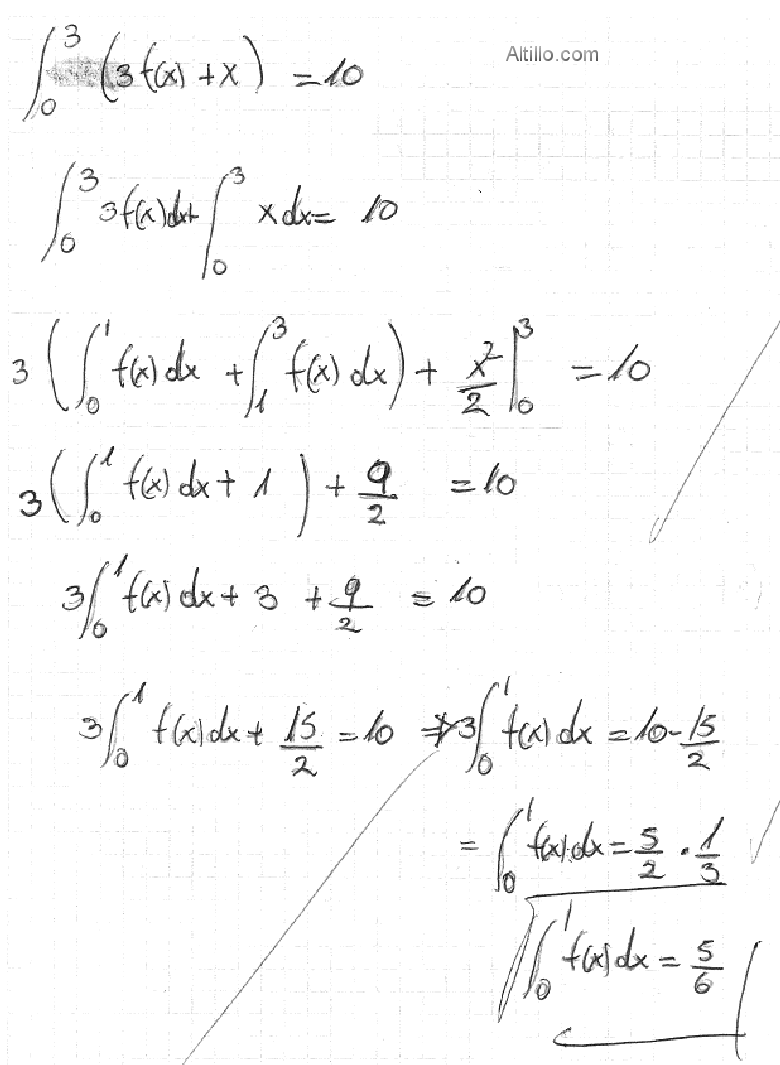 Altillo.com
∫₀³ (3f(x) + x) = 10
∫₀³ 3f(x)dx + ∫₀³ x dx = 10
3 (∫₀¹ f(x) dx + ∫₁³ f(x) dx) + x²/2 |₀³ = 10
3 (∫₀¹ f(x) dx + 1) + 9/2 = 10
3∫₀¹ f(x) dx + 3 + 9/2 = 10
3∫₀¹ f(x)dx + 15/2 = 10 ⇒ 3∫₀¹ f(x)dx = 10 - 15/2
= ∫₀¹ f(x)dx = 5/2 · 1/3
∫₀¹ f(x)dx = 5/6